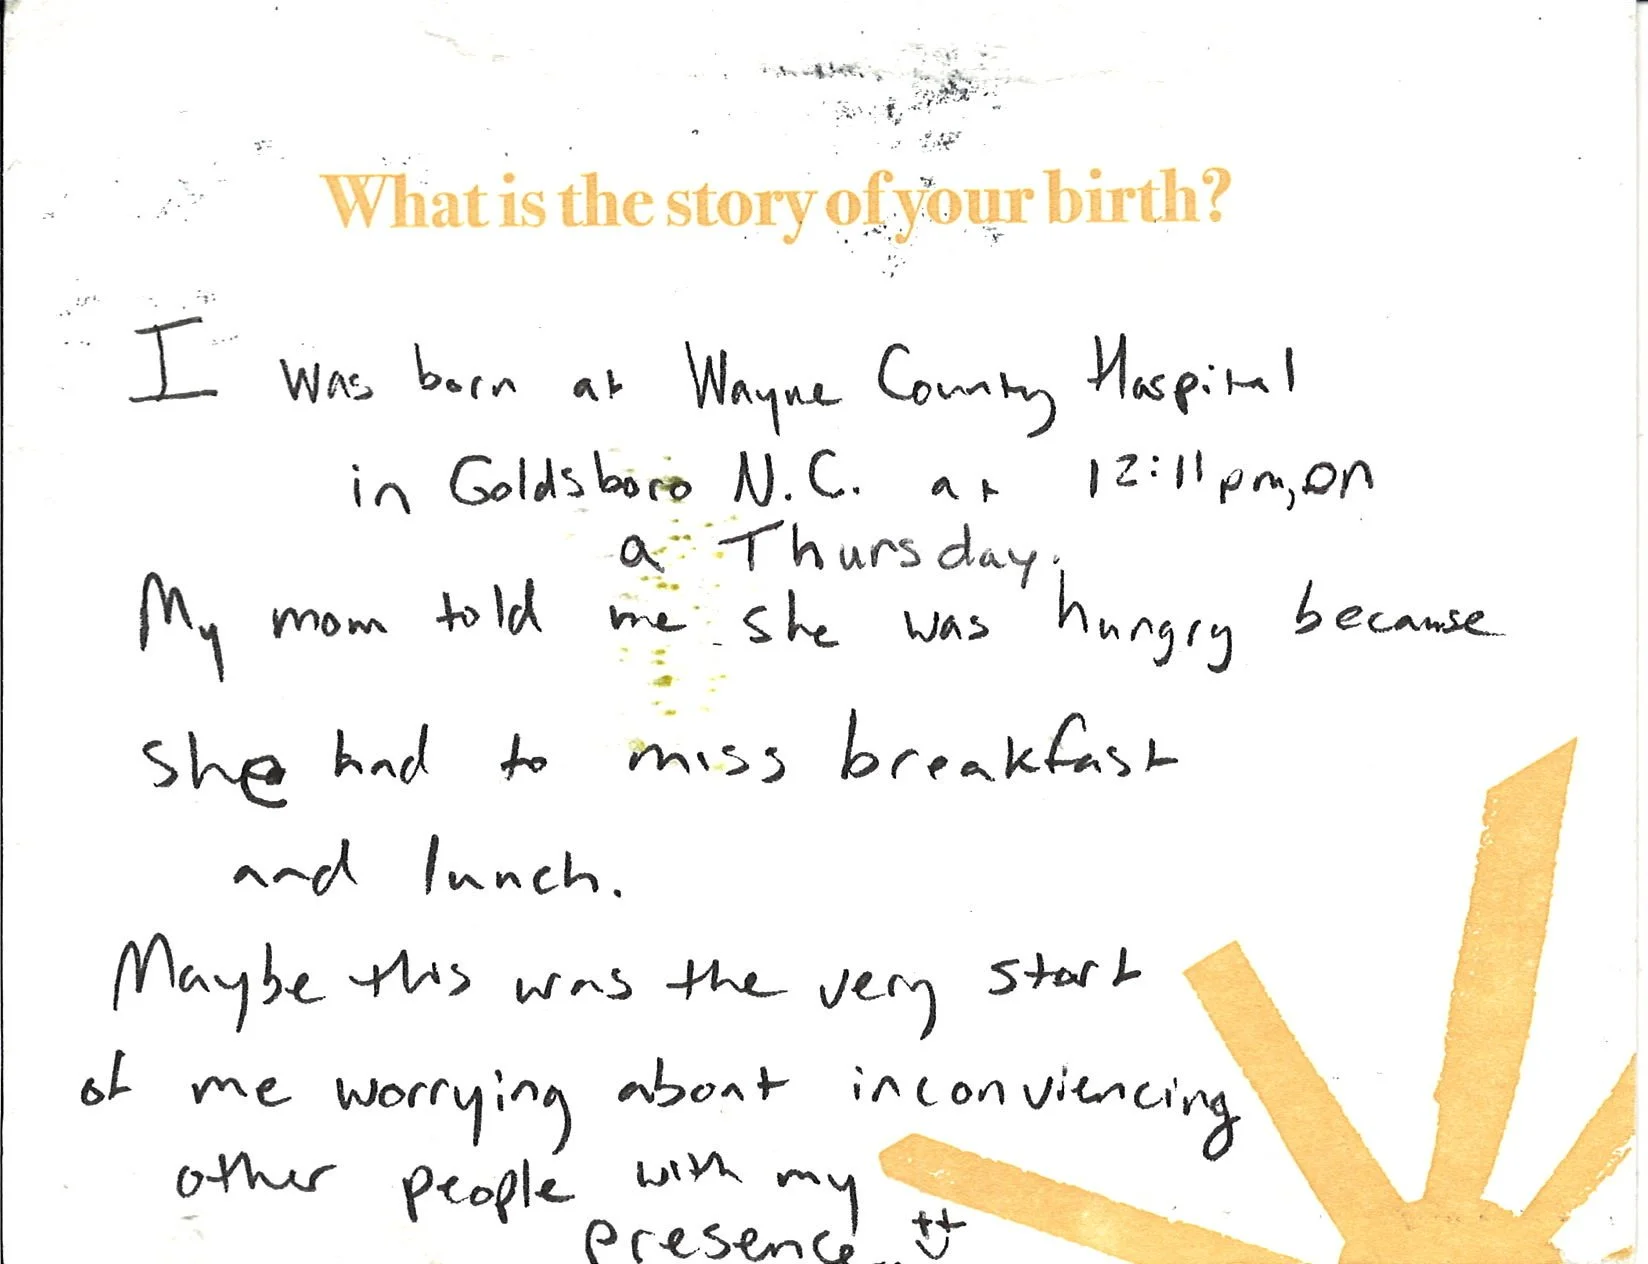 What is the story of your birth?
I was born at Wayne County Hospital
in Goldsboro N.C. at 12:11pm, on
a Thursday.
My mom told me she was hungry because
she had to miss breakfast
and lunch.
Maybe this was the very start
of me worrying about inconviencing
other people with my
presence..